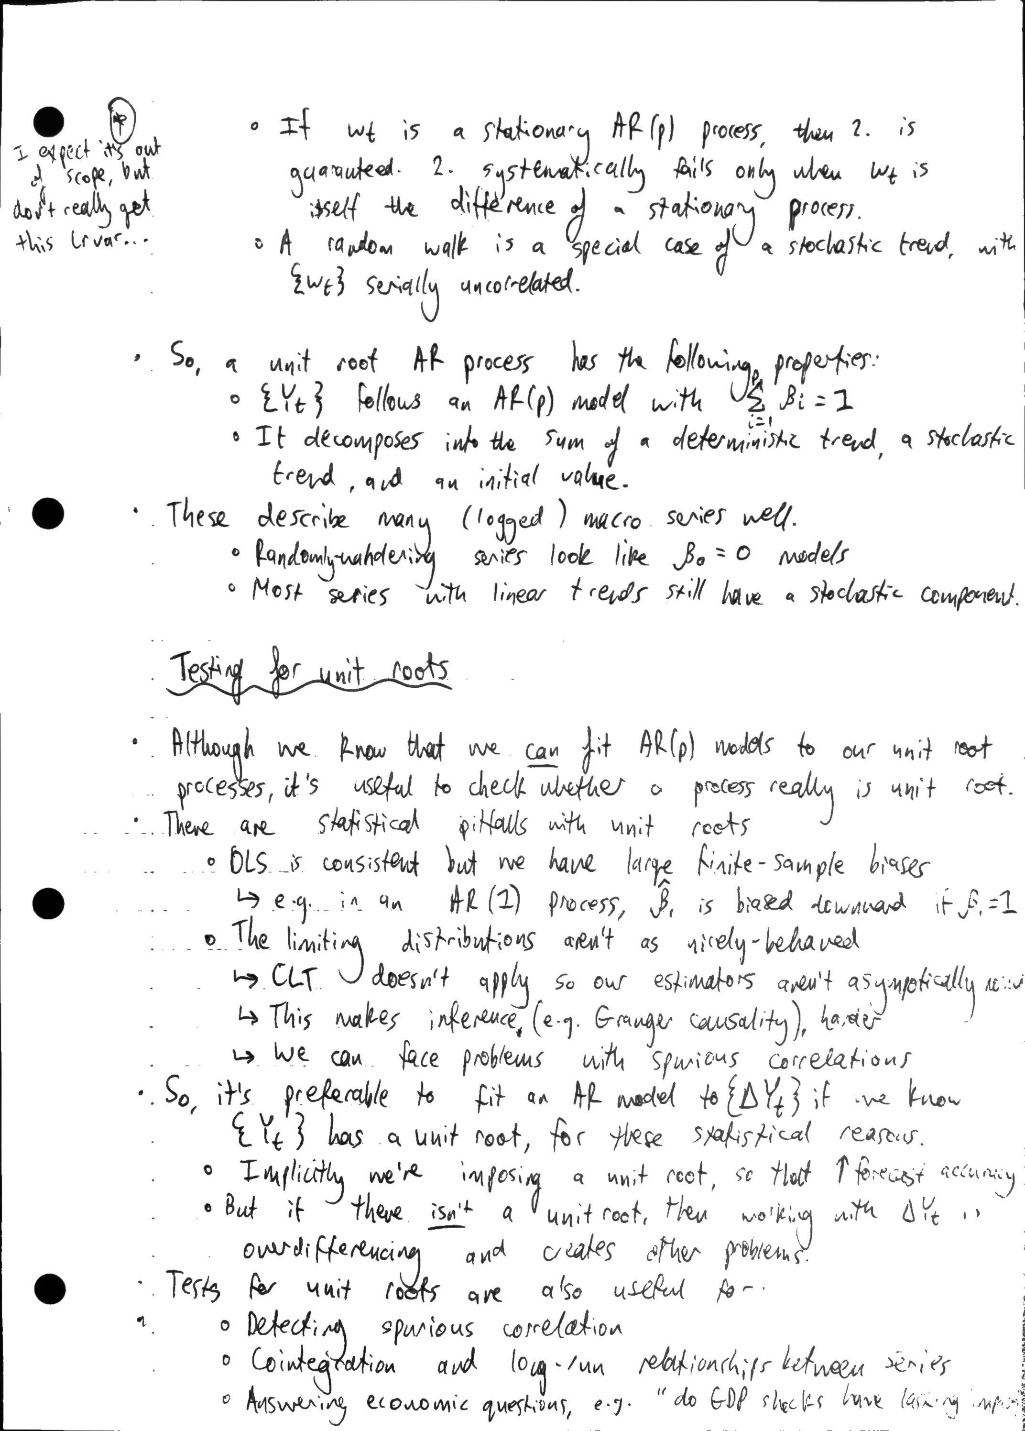 *
I expect it's out
of scope, but
don't really get
this lrvar...
◦ If wt is a stationary AR(p) process, then 2. is
guaranteed. 2. systematically fails only when wt is
itself the difference of a stationary process.
◦ A random walk is a special case of a stochastic trend, with
{wt} serially uncorrelated.
• So, a unit root AR process has the following properties:
◦ {Yt} follows an AR(p) model with Σ_{i=1}^{p} βi = 1
◦ It decomposes into the sum of a deterministic trend, a stochastic
trend, and an initial value.
• These describe many (logged) macro series well.
◦ Randomly-wandering series look like β0 = 0 models
◦ Most series with linear trends still have a stochastic component.
Testing for unit roots
• Although we know that we can fit AR(p) models to our unit root
processes, it's useful to check whether a process really is unit root.
• There are statistical pitfalls with unit roots
◦ OLS is consistent but we have large finite-sample biases
↳ e.g. in an AR(1) process, β̂1 is biased downward if β1=1
◦ The limiting distributions aren't as nicely-behaved
↳ CLT doesn't apply so our estimators aren't asympotically
↳ This makes inference, (e.g. Granger causality), harder
↳ We can face problems with spurious correlations
• So, it's preferable to fit an AR model to {ΔYt} if we know
{Yt} has a unit root, for these statistical reasons.
◦ Implicitly we're imposing a unit root, so that ↑ forecast accuracy
◦ But if there isn't a unit root, then working with ΔYt is
overdifferencing and creates other problems.
• Tests for unit roots are also useful for -
◦ Detecting spurious correlation
◦ Cointegration and long-run relationships between series
◦ Answering economic questions, e.g. "do GDP shocks have lasting